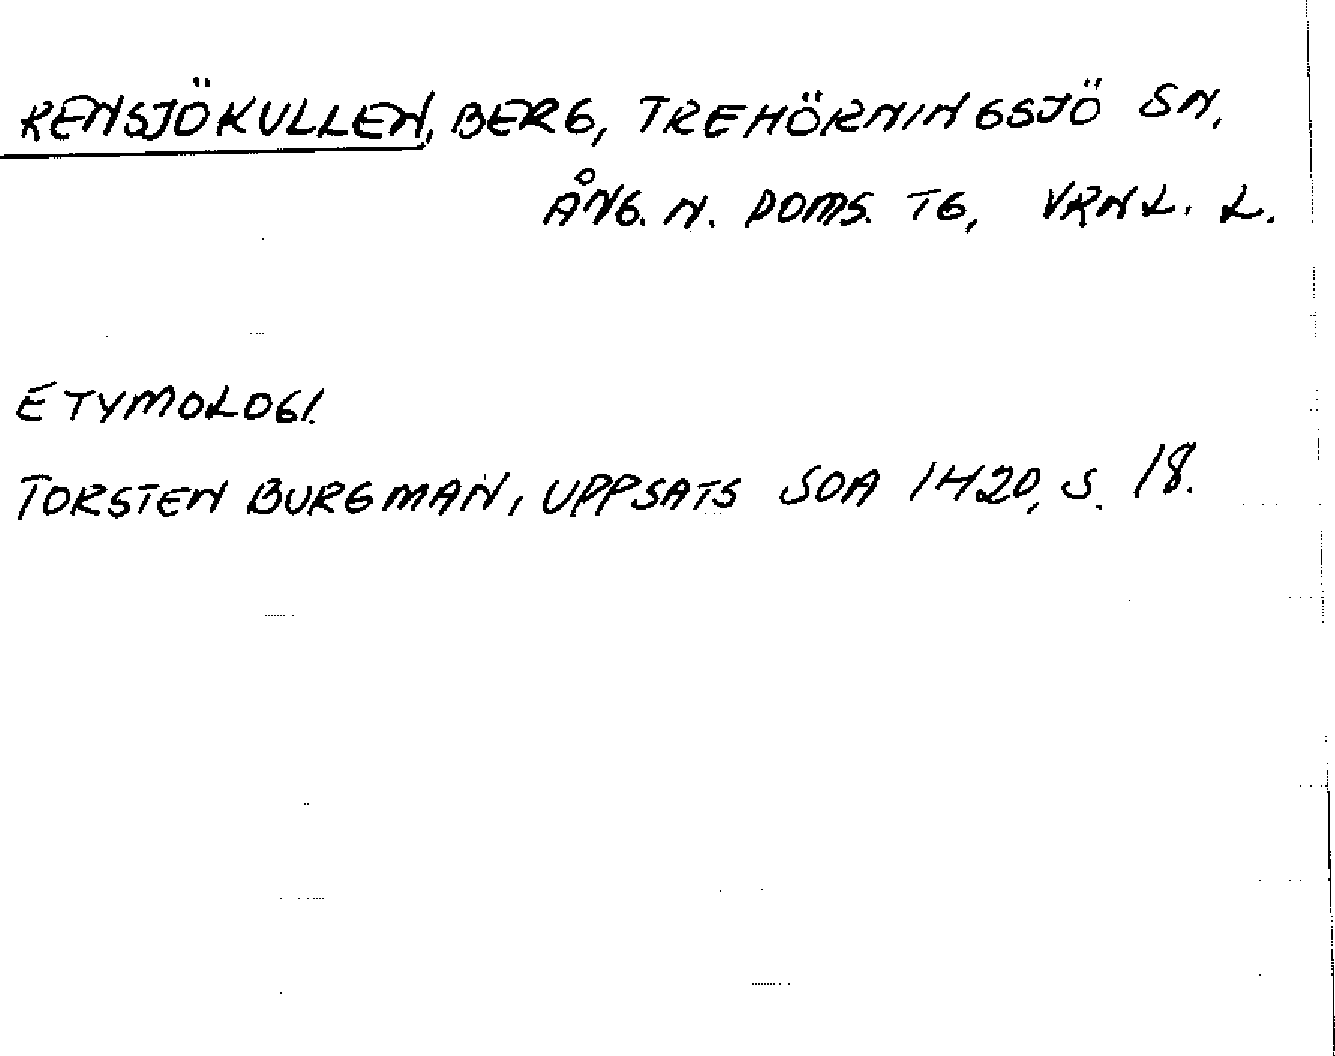 RENSJÖKULLEN, BERG, TREHÖRNINGSSJÖ SN,
ÅNG. N. DOMS. TG, VRNL. L.
ETYMOLOGI.
TORSTEN BURGMAN, UPPSATS SOA 1420, S. 18.